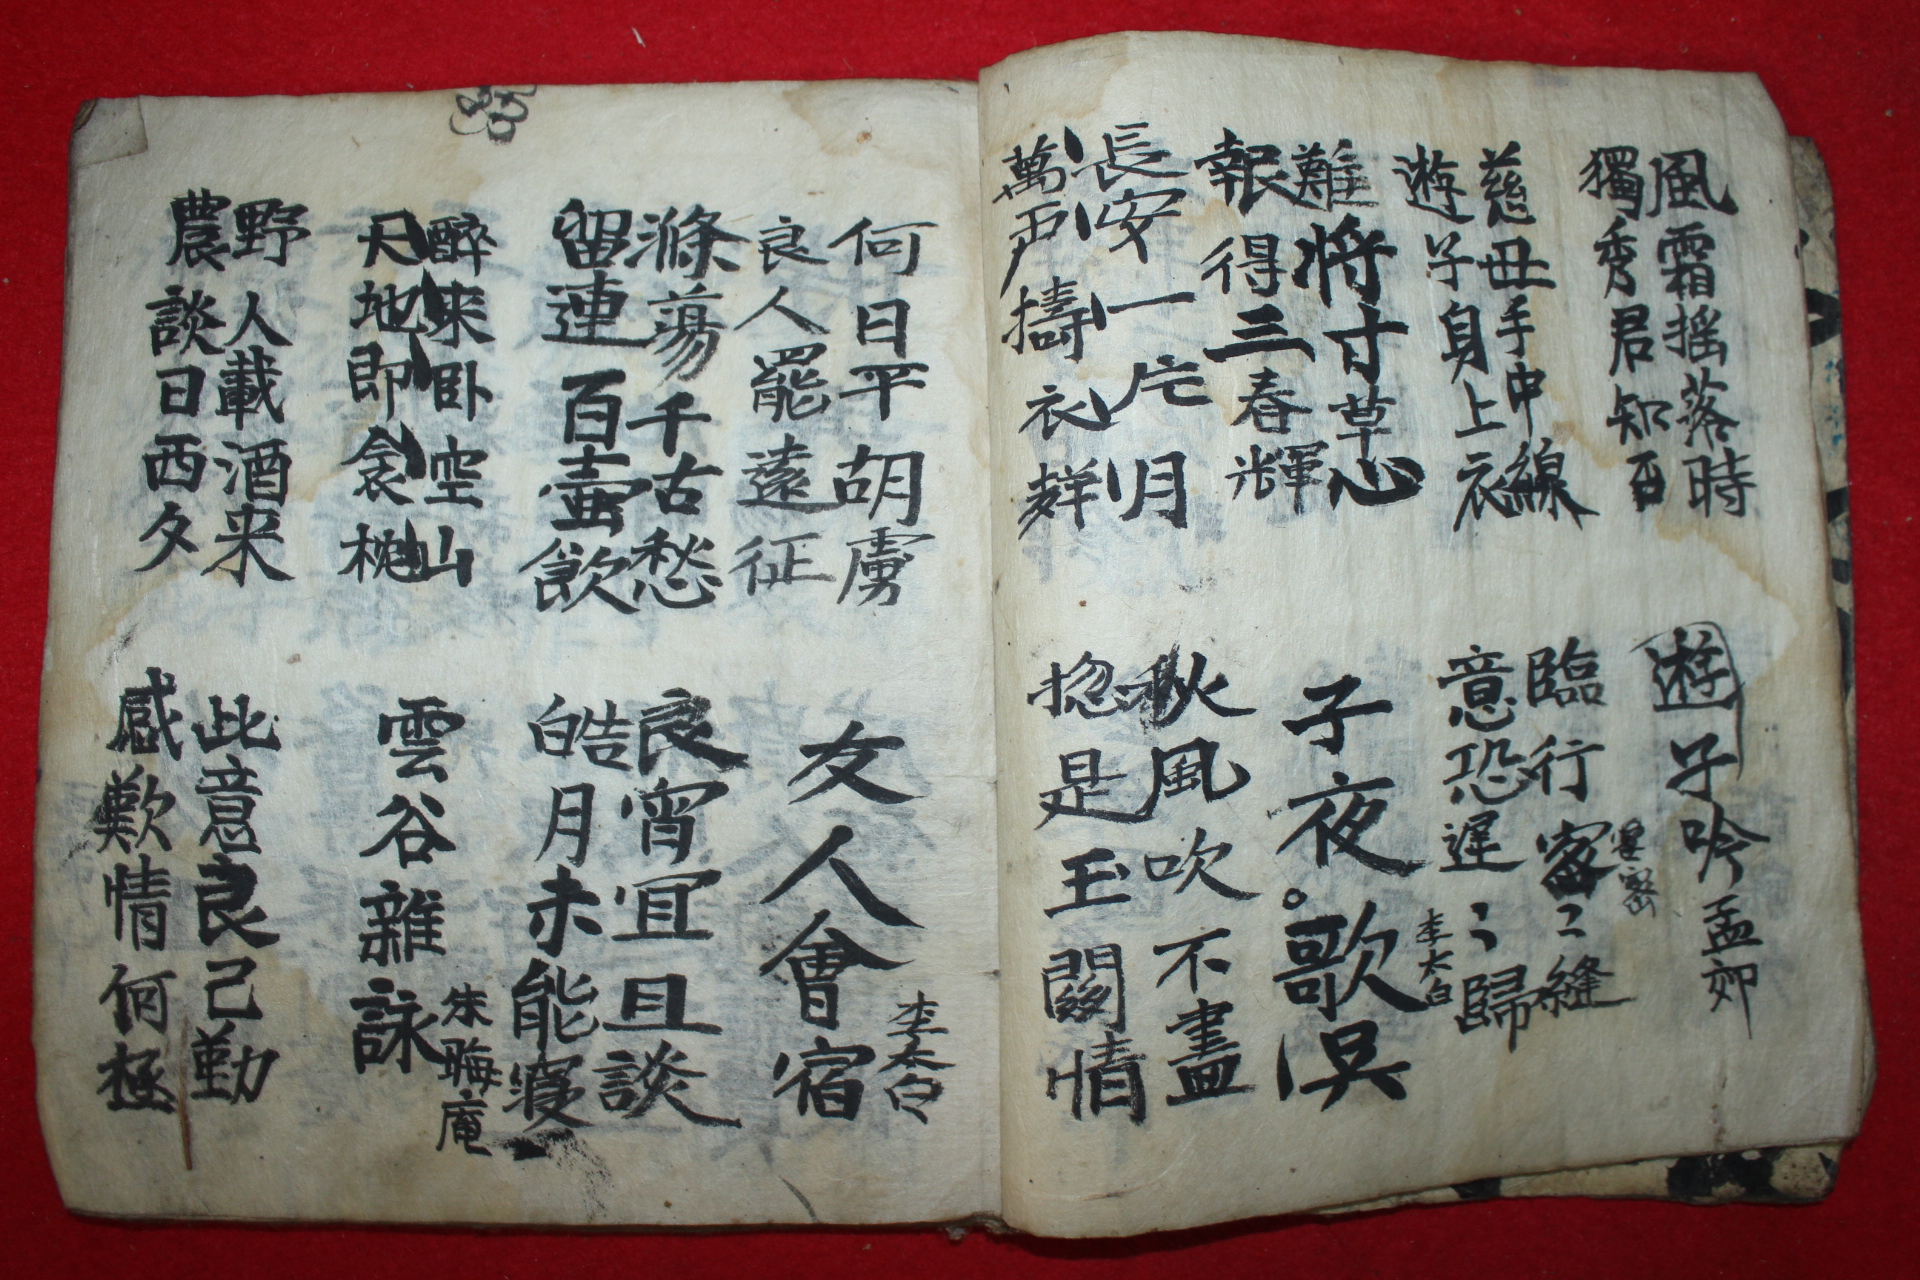 風霜搖落時
獨秀君知否
遊子吟 孟郊
慈母手中線
遊子身上衣
臨行密〻縫
密密
意恐遲〻歸
難將寸草心
報得三春輝
子夜。歌吳
李太白
長安一片月
萬戶擣衣
秋風吹不盡
惣是玉關情
何日平胡虜
良人罷遠征
友人會宿
李太白
滌蕩千古愁
留連百壺飲
良宵宜且談
皓月未能寢
醉来卧空山
天地即衾枕
雲谷雜詠
朱晦庵
野人載酒来
農談日西夕
此意良已勤
感歎情何極